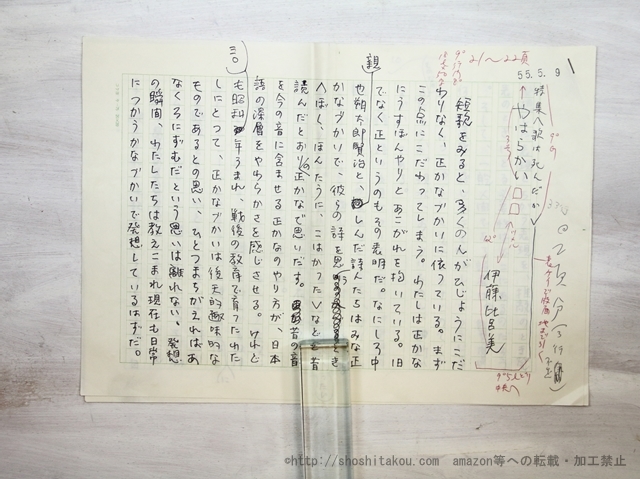 21〜22頁
55.5.9
特集〈歌は死んだか〉
やはらかい□□
伊藤比呂美
短歌をみると、多くのひとがひじょうにこだ
わりなく、正かなづかいに依っている。まず
この点にこだわってしまう。わたしは正かな
にうすぼんやりとあこがれを抱いている。旧
でなく正というのもその表明だ。なにしろ中
也朔太郎賢治と、しんだ詩人たちはみな正
かなづかいで、彼らの詩を思うとき
へぼく、ほんたうに、こはかつたなどと昔
読んだとおりの正かなで思いだす。昔の音
を今の音に含ませる正かなのやり方が、日本
語の深層をやわらかさを感じさせる。けれど
も昭和三〇年うまれ、戦後の教育で育ったわた
しにとって、正かなづかいは後天的趣味的な
ものであるとの思い、ひとつまちがえればあ
なくろにずむだという思いは離れない。発想
の瞬間、わたしたちは教えこまれ現在も日常
につかうかなづかいで発想しているはずだ。
親
©http://shoshitakou.com amazon等への転載・加工禁止